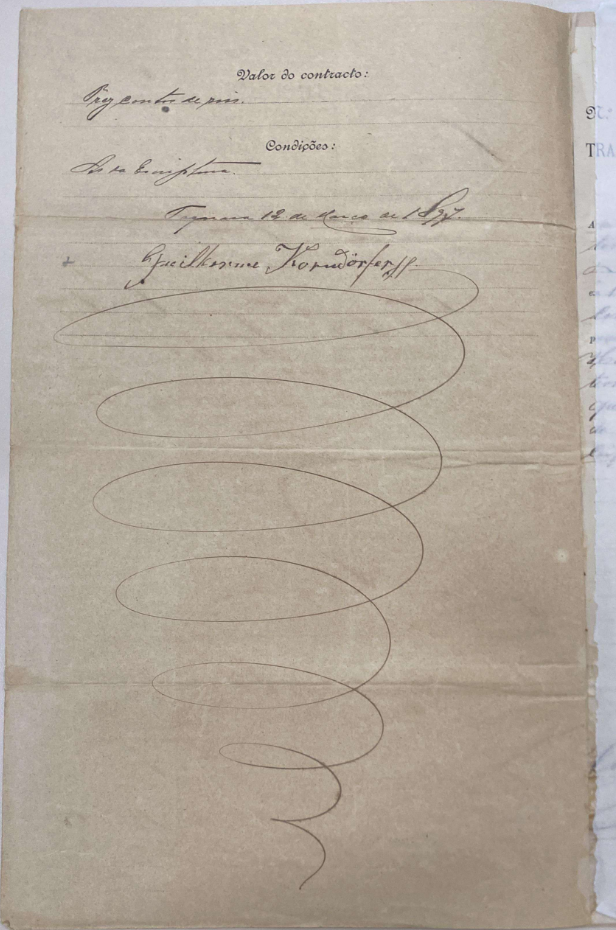 Valor do contracto:
Trez contos de reis.
Condições:
As da Escriptura.
Taquara 12 de Março de 1897.
Guilherme Korndörfer
Nº
TRA
A
P